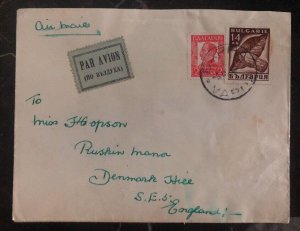 Air mail
PAR AVION
(ПО ВЪЗДУХА)
БЪЛГАРИЯ
BULGARIE
14
БЪЛГАРИЯ
To
Miss F Hopson
Ruskin Mana
Denmark Hill
S.E.5.
England